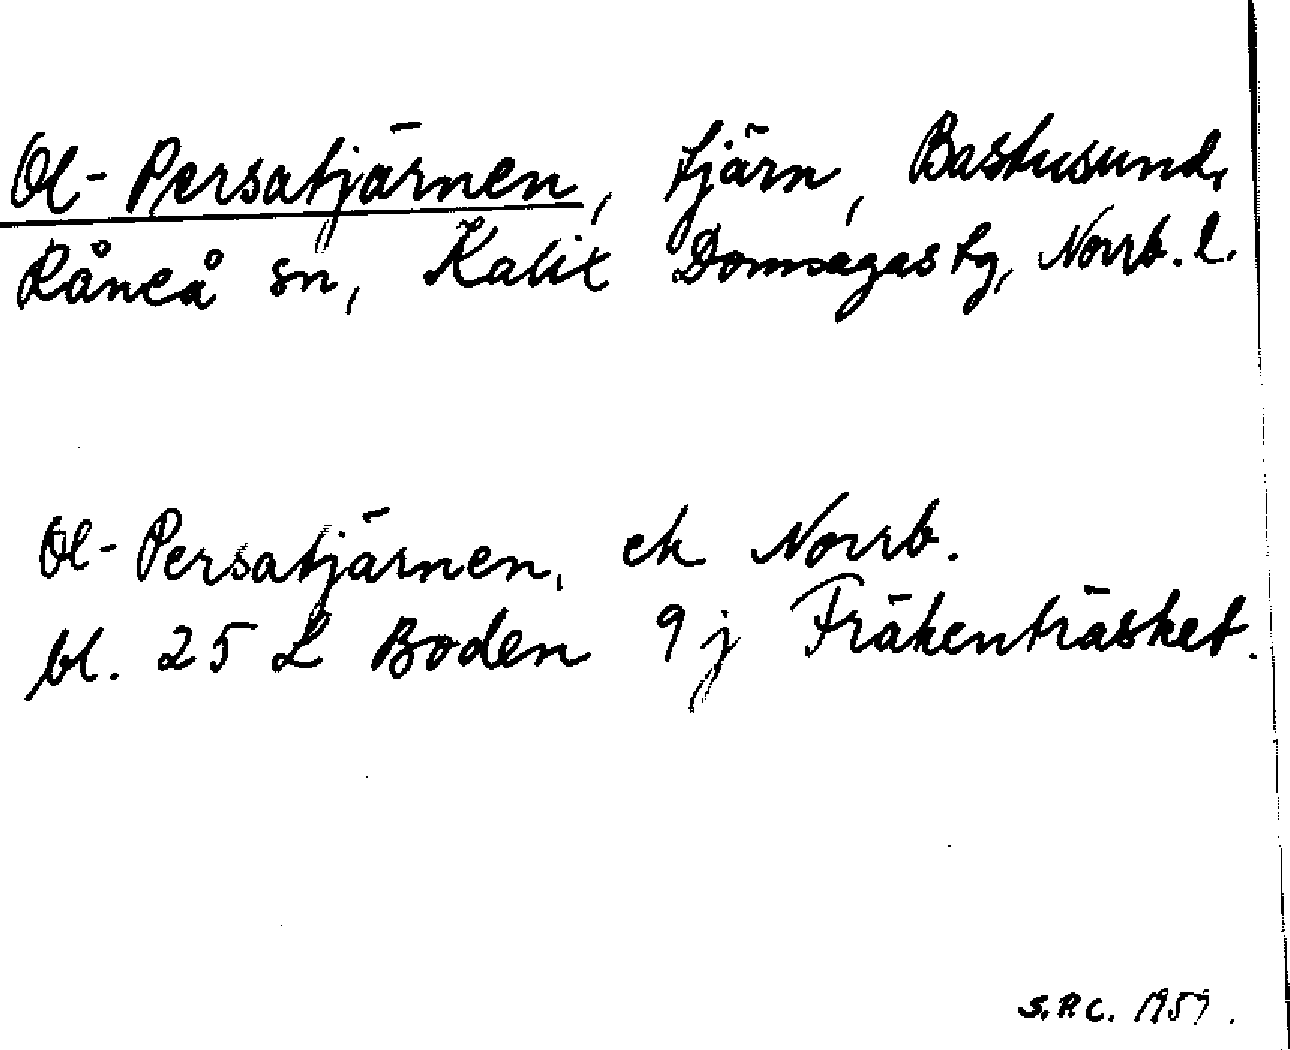 Ol-Persatjärnen, tjärn, Bastusund,
Råneå sn, Kalix Domsagas tg, Norrb. l.
Ol-Persatjärnen, ek Norrb.
bl. 25 L Boden 9 j Fräkenträsket.
S.P.C. 1959.